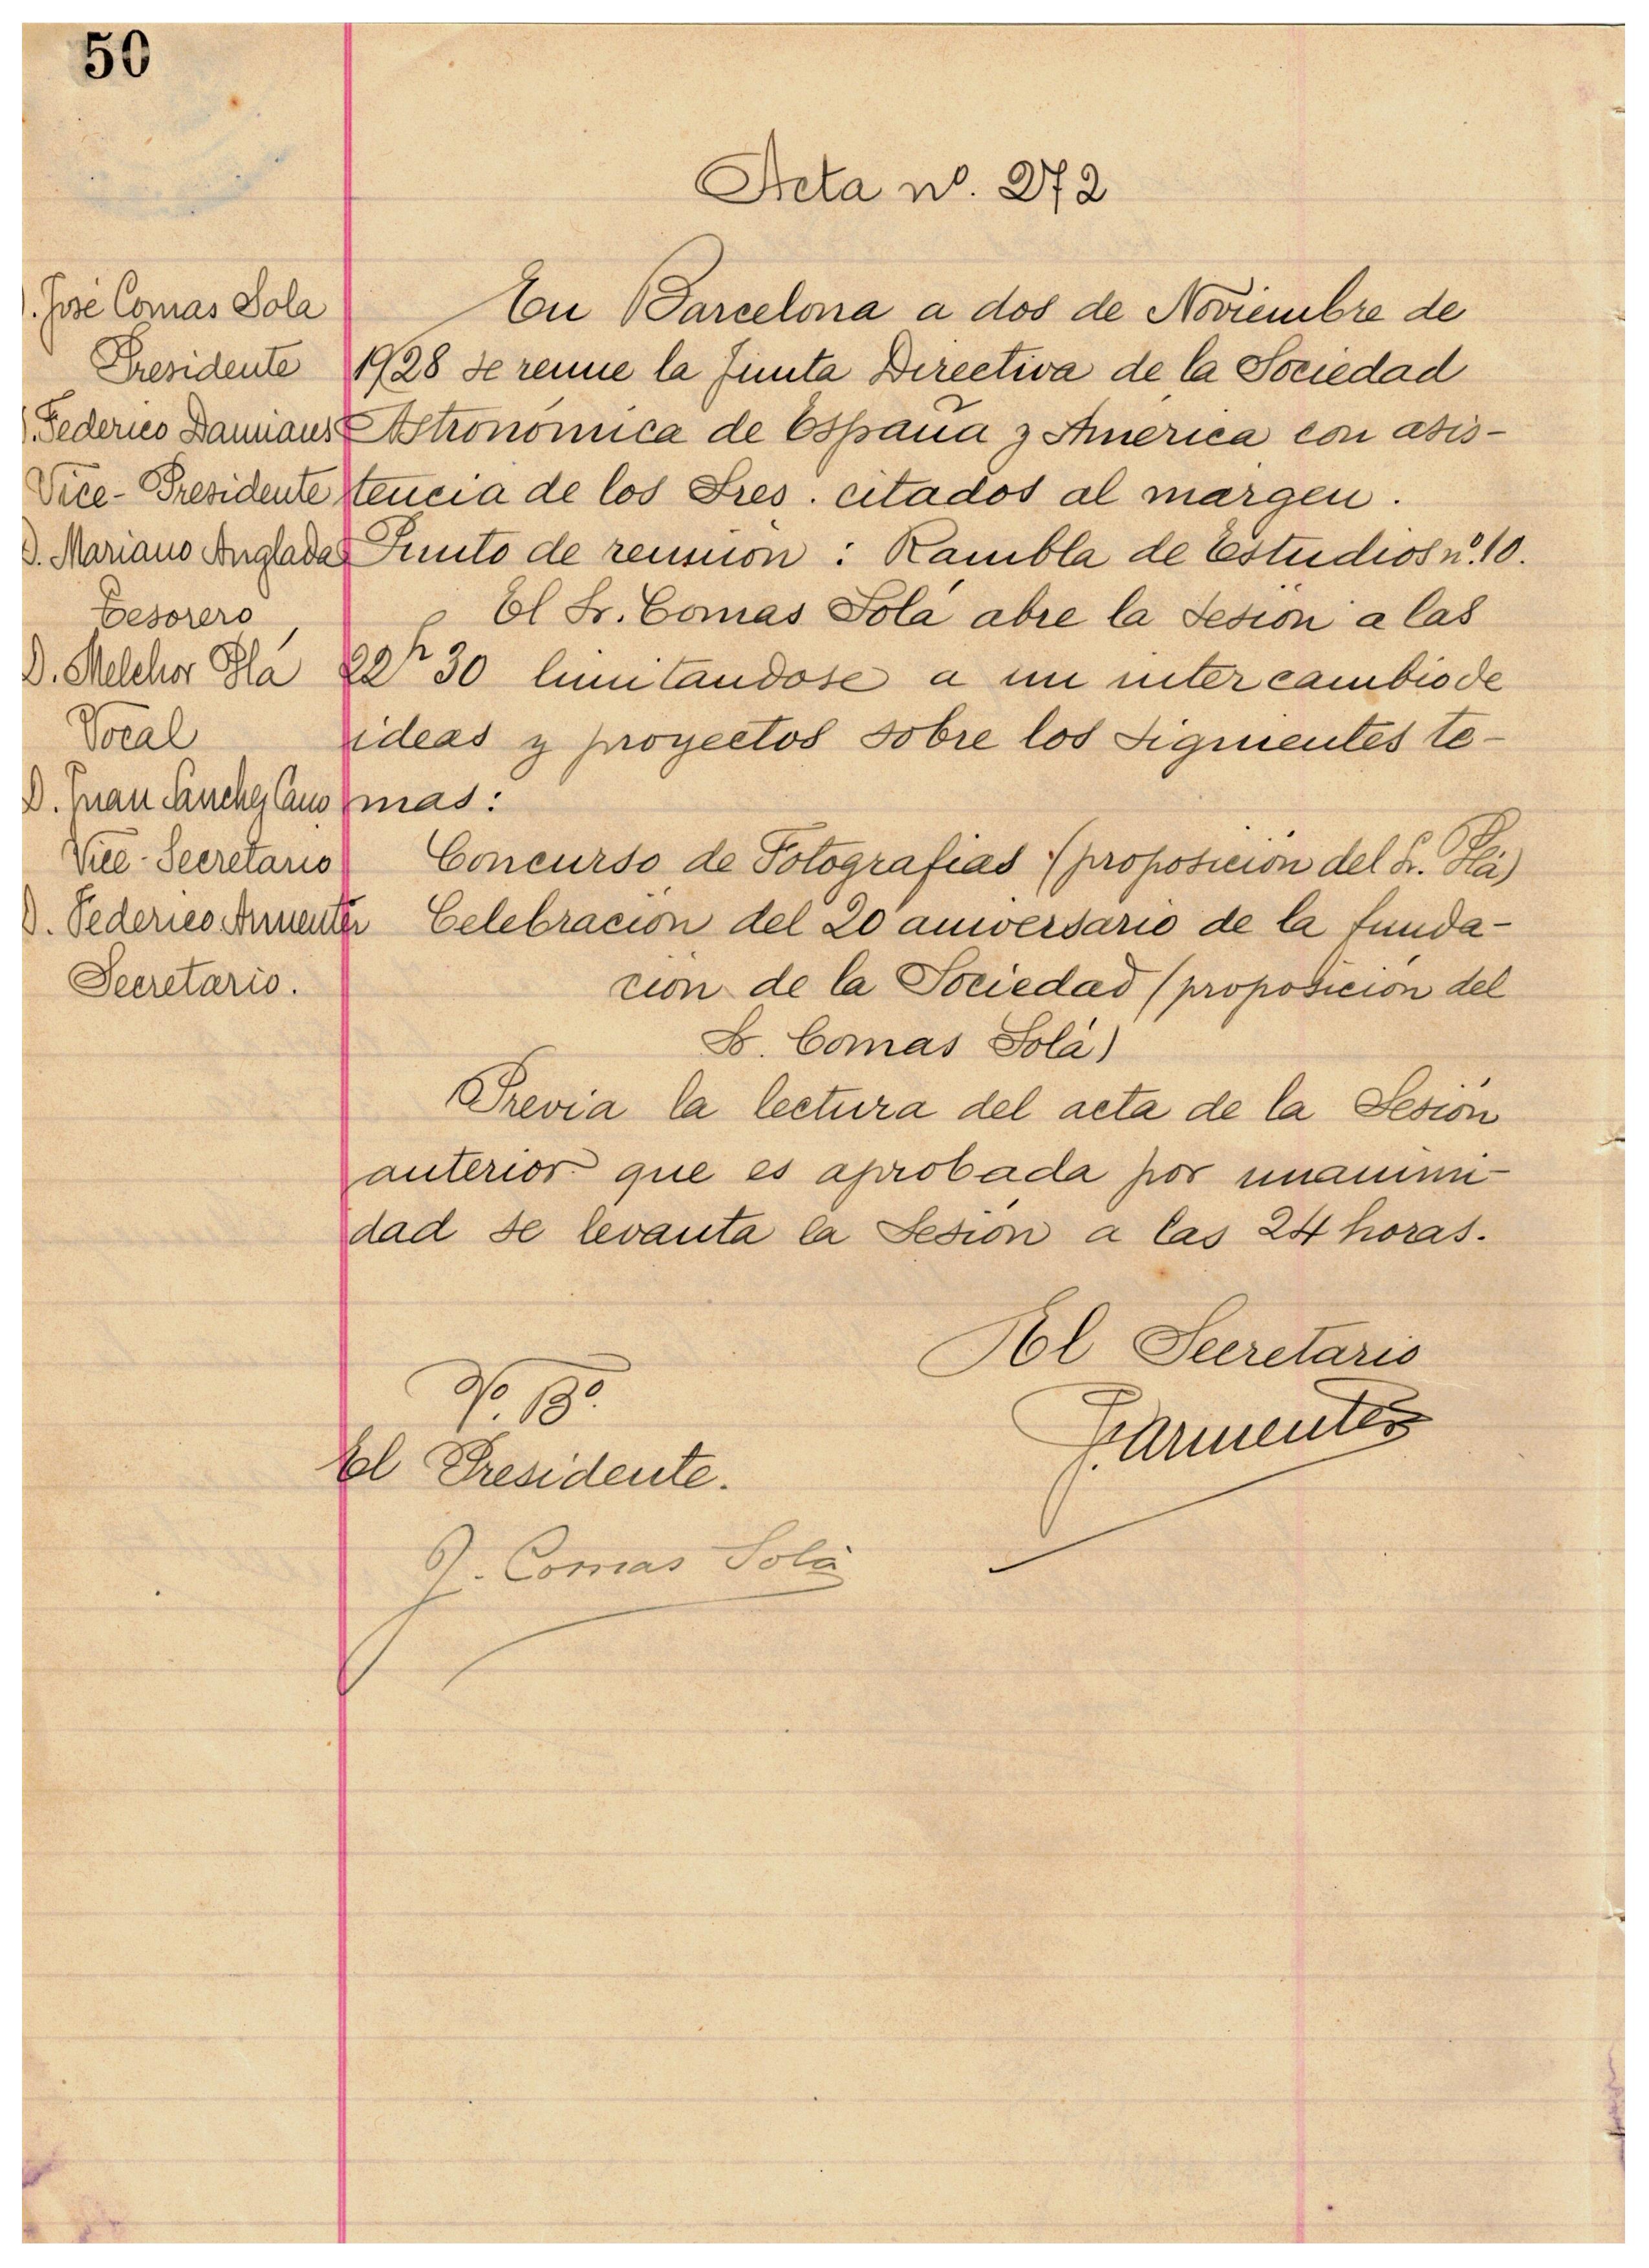 50
Acta nº. 272
D. José Comas Sola
Presidente
D. Federico Damians
Vice-Presidente
D. Mariano Anglada
Tesorero
D. Melchor Plá
Vocal
D. Juan Sanchez Cano
Vice-Secretario
D. Federico Armenter
Secretario.
En Barcelona a dos de Noviembre de
1928 se reune la Junta Directiva de la Sociedad
Astronómica de España y América con asis-
tencia de los Sres. citados al margen.
Punto de reunión : Rambla de Estudios nº.10.
El Sr. Comas Solá abre la Sesión a las
22h 30 limitandose a un intercambio de
ideas y proyectos sobre los siguientes te-
mas:
Concurso de Fotografias (proposición del Sr. Plá)
Celebración del 20 aniversario de la funda-
ción de la Sociedad (proposición del
Sr. Comas Solá)
Previa la lectura del acta de la Sesión
anterior que es aprobada por unanimi-
dad se levanta la Sesión a las 24 horas.
El Secretario
F. Armenter
Vº. Bº.
El Presidente.
J. Comas Solá